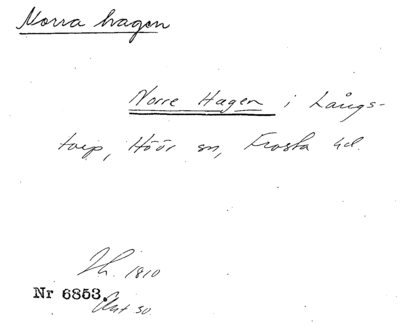 Norra hagen
Norre Hagen i Långs-
torp, Höör sn, Frosta hd.
1810
Nr 6853.
Akt 50.